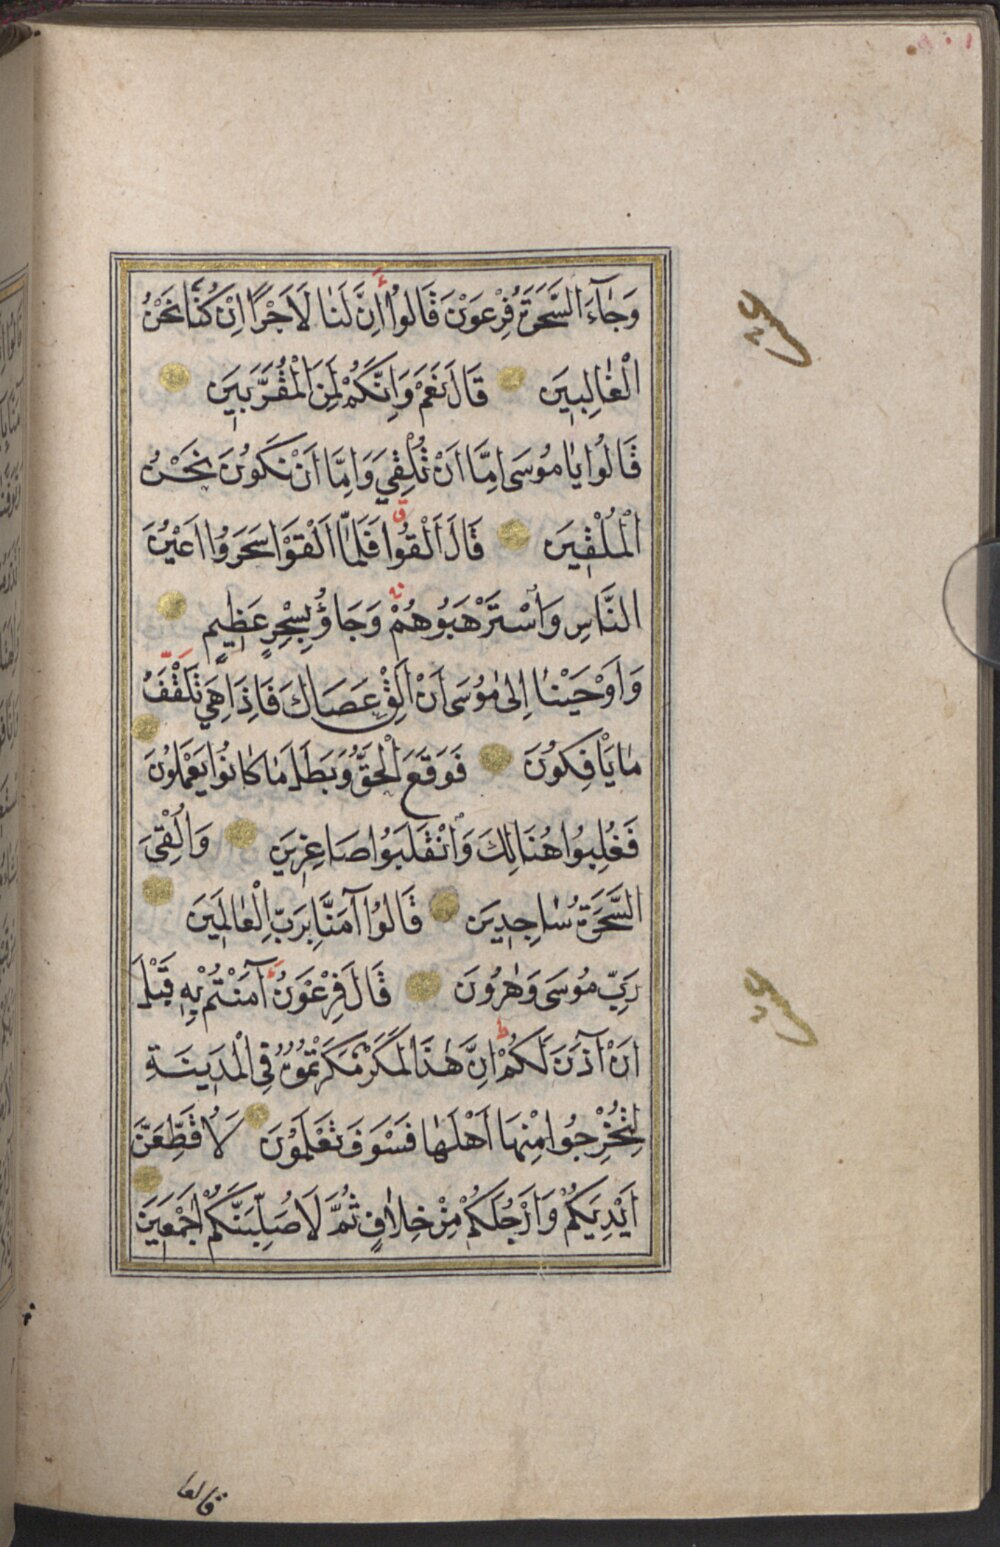 وَجَآءَ السَّحَرَةُ فِرْعَوْنَ قَالُوا أَإِنَّ لَنَا لَاَجْرًا اِنْ كُنَّا نَحْنُ
الْغَالِبِينَ قَالَ نَعَمْ وَاِنَّكُمْ لَمِنَ الْمُقَرَّبِينَ
قَالُوا يَا مُوسَى اِمَّا اَنْ تُلْقِيَ وَاِمَّا اَنْ نَكُونَ نَحْنُ
الْمُلْقِينَ قَالَ اَلْقُوا فَلَمَّا اَلْقَوْا سَحَرُوا اَعْيُنَ
النَّاسِ وَاسْتَرْهَبُوهُمْ وَجَاؤُ بِسِحْرٍ عَظِيمٍ
وَاَوْحَيْنَا اِلَى مُوسَى اَنْ اَلْقِ عَصَاكَ فَاِذَا هِيَ تَلْقَفُ
مَا يَأْفِكُونَ فَوَقَعَ الْحَقُّ وَبَطَلَ مَا كَانُوا يَعْمَلُونَ
فَغُلِبُوا هُنَالِكَ وَانْقَلَبُوا صَاغِرِينَ وَاُلْقِيَ
السَّحَرَةُ سَاجِدِينَ قَالُوا آمَنَّا بِرَبِّ الْعَالَمِينَ
رَبِّ مُوسَى وَهٰرُونَ قَالَ فِرْعَوْنُ آمَنْتُمْ بِهِ قَبْلَ
اَنْ آذَنَ لَكُمْ اِنَّ هٰذَا لَمَكْرٌ مَكَرْتُمُوهُ فِي الْمَدِينَةِ
لِتُخْرِجُوا مِنْهَا اَهْلَهَا فَسَوْفَ تَعْلَمُونَ لَاُقَطِّعَنَّ
اَيْدِيَكُمْ وَاَرْجُلَكُمْ مِنْ خِلَافٍ ثُمَّ لَاُصَلِّبَنَّكُمْ اَجْمَعِينَ
قالوا